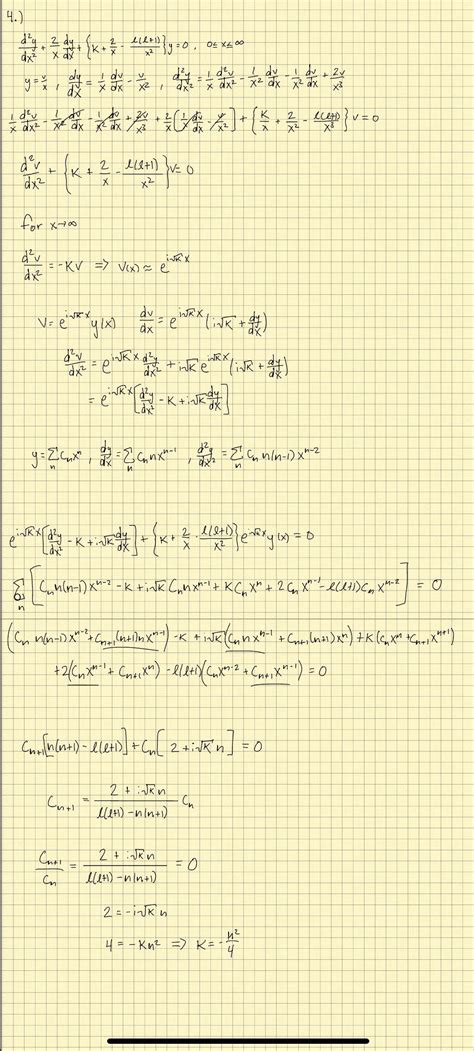 4.)
d²y/dx² + 2/x dy/dx + {K + 2/x - l(l+1)/x²} y = 0 , 0≤x≤∞
y = v/x , dy/dx = 1/x dv/dx - v/x² , d²y/dx² = 1/x d²v/dx² - 1/x² dv/dx - 1/x² dv/dx + 2v/x³
1/x d²v/dx² - 1/x² dv/dx - 1/x² dv/dx + 2v/x³ + 2/x (1/x dv/dx - v/x²] + {K/x + 2/x² - l(l+1)/x³} v = 0
d²v/dx² + {K + 2/x - l(l+1)/x²} v = 0
for x→∞
d²v/dx² = -Kv ⇒ v(x) ≈ e^{i√K x}
v = e^{i√K x} y(x) dv/dx = e^{i√K x} (i√K + dy/dx)
d²v/dx² = e^{i√K x} d²y/dx² + i√K e^{i√K x} (i√K + dy/dx)
= e^{i√K x} [d²y/dx² - K + i√K dy/dx]
y = Σ_n C_n x^n , dy/dx = Σ_n C_n n x^{n-1} , d²y/dx² = Σ_n C_n n(n-1) x^{n-2}
e^{i√K x} [d²y/dx² - K + i√K dy/dx] + {K + 2/x - l(l+1)/x²} e^{i√K x} y(x) = 0
Σ_n [C_n n(n-1) x^{n-2} - K + i√K C_n n x^{n-1} + K C_n x^n + 2 C_n x^{n-1} - l(l+1) C_n x^{n-2}] = 0
(C_n n(n-1) x^{n-2} + C_{n+1} (n+1) n x^{n-1}) - K + i√K (C_n n x^{n-1} + C_{n+1} (n+1) x^n) + K (C_n x^n + C_{n+1} x^{n+1})
+ 2 (C_n x^{n-1} + C_{n+1} x^n) - l(l+1) (C_n x^{n-2} + C_{n+1} x^{n-1}) = 0
C_{n+1} [n(n+1) - l(l+1)] + C_n [2 + i√K n] = 0
C_{n+1} = (2 + i√K n)/(l(l+1) - n(n+1)) C_n
C_{n+1}/C_n = (2 + i√K n)/(l(l+1) - n(n+1)) = 0
2 = -i√K n
4 = -Kn² ⇒ K = - n²/4